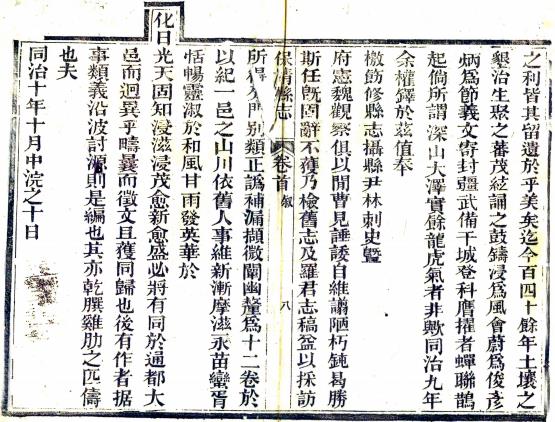 之利皆其留遺於乎美矣迄今百四十餘年土壤之
墾治生聚之蕃茂絃誦之鼓鑄浸爲風會蔚爲俊彥
炳爲節義文寄封疆武備干城登科膺擢者蟬聯鵲
起倘所謂深山大澤實餘龍虎氣者非歟同治九年
余權鐸於茲值奉
檄飭修縣志攝縣尹林刺史曁
府憲魏觀察俱以聞曹見諈諉自維譾陋朽鈍曷勝
斯任旣固辭不獲乃檢舊志及羅君志稿益以採訪
保靖縣志 卷首 敘 八
所得分門別類正譌補漏擷微闡幽釐爲十二卷於
以紀一邑之山川依舊人事維新漸摩滋永苗蠻胥
恬暢靈淑於和風甘雨發英華於
化日
光天固知浸滋浸茂愈新愈盛必將有同於通都大
邑而迥異乎疇曩而徵文且獲同歸也後有作者据
事類義沿波討源則是編也其亦乾饌雞肋之匹儔
也夫
同治十年十月中浣之十日